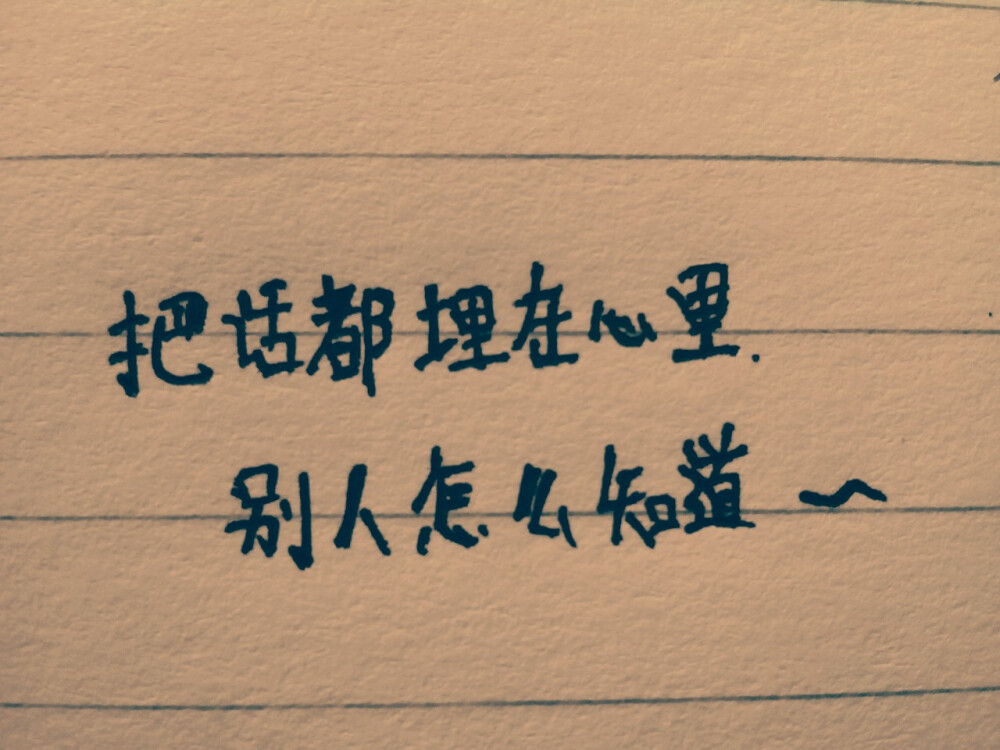 把话都埋在心里.
别人怎么知道~